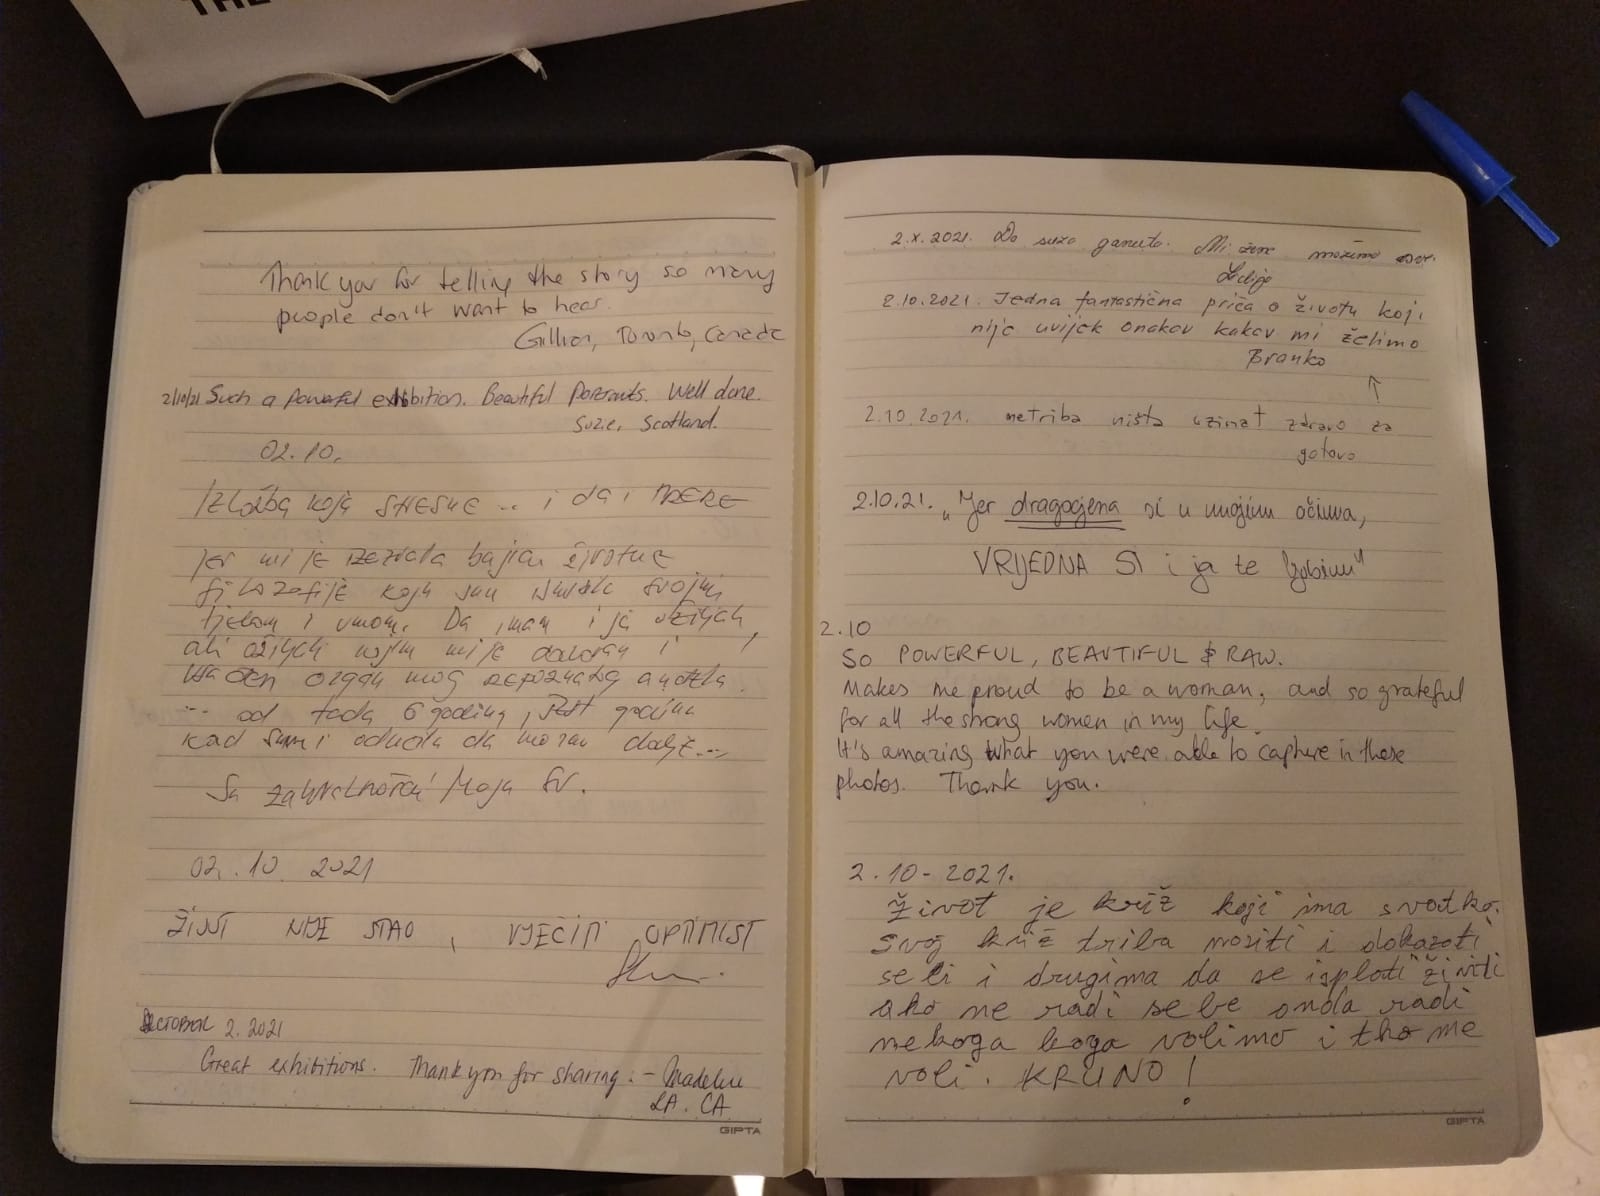 THE
Thank you for telling the story so many
people don't want to hear.
Gillian, Toronto, Canada
2/10/21 Such a powerful exhibition. Beautiful Portraits. Well done.
Suzie, Scotland.
02.10.
Izložba koja STISNE ... i da i
jer mi je
koju sam svojim
tijelom i umom. Da imam i ja ožiljak,
ali ožiljak kojim mi je
organ mog
... od tada 6 godina, šest godina
kad sam i odlučila da moram dalje...
Sa zahvalnošću Maja
02.10 2021
ŽIVOT NIJE STAO, VJEČITI OPTIMIST
OCTOBER 2. 2021
Great exhibitions. Thank you for sharing. - Madeline
LA. CA
GIPTA
2.X.2021. Do suza ganuta. Mi žene možemo sve.
2.10.2021. Jedna fantastična priča o životu koji
nije uvijek onakav kakav mi želimo
Branko
2.10.2021. netriba ništa uzimat zdravo za
gotovo
2.10.21. „Jer dragocjena si u mojim očima,
VRIJEDNA SI i ja te ljubim"
2.10
SO POWERFUL, BEAUTIFUL & RAW.
Makes me proud to be a woman, and so grateful
for all the strong women in my life.
It's amazing what you were able to capture in these
photos. Thank you.
2.10-2021.
Život je križ koji ima svatko.
svoj križ triba nositi i dokazati
sebi i drugima da se isplati živiti
ako ne radi sebe onda radi
nekoga koga volimo i tko me
voli. KRUNO!
GIPTA